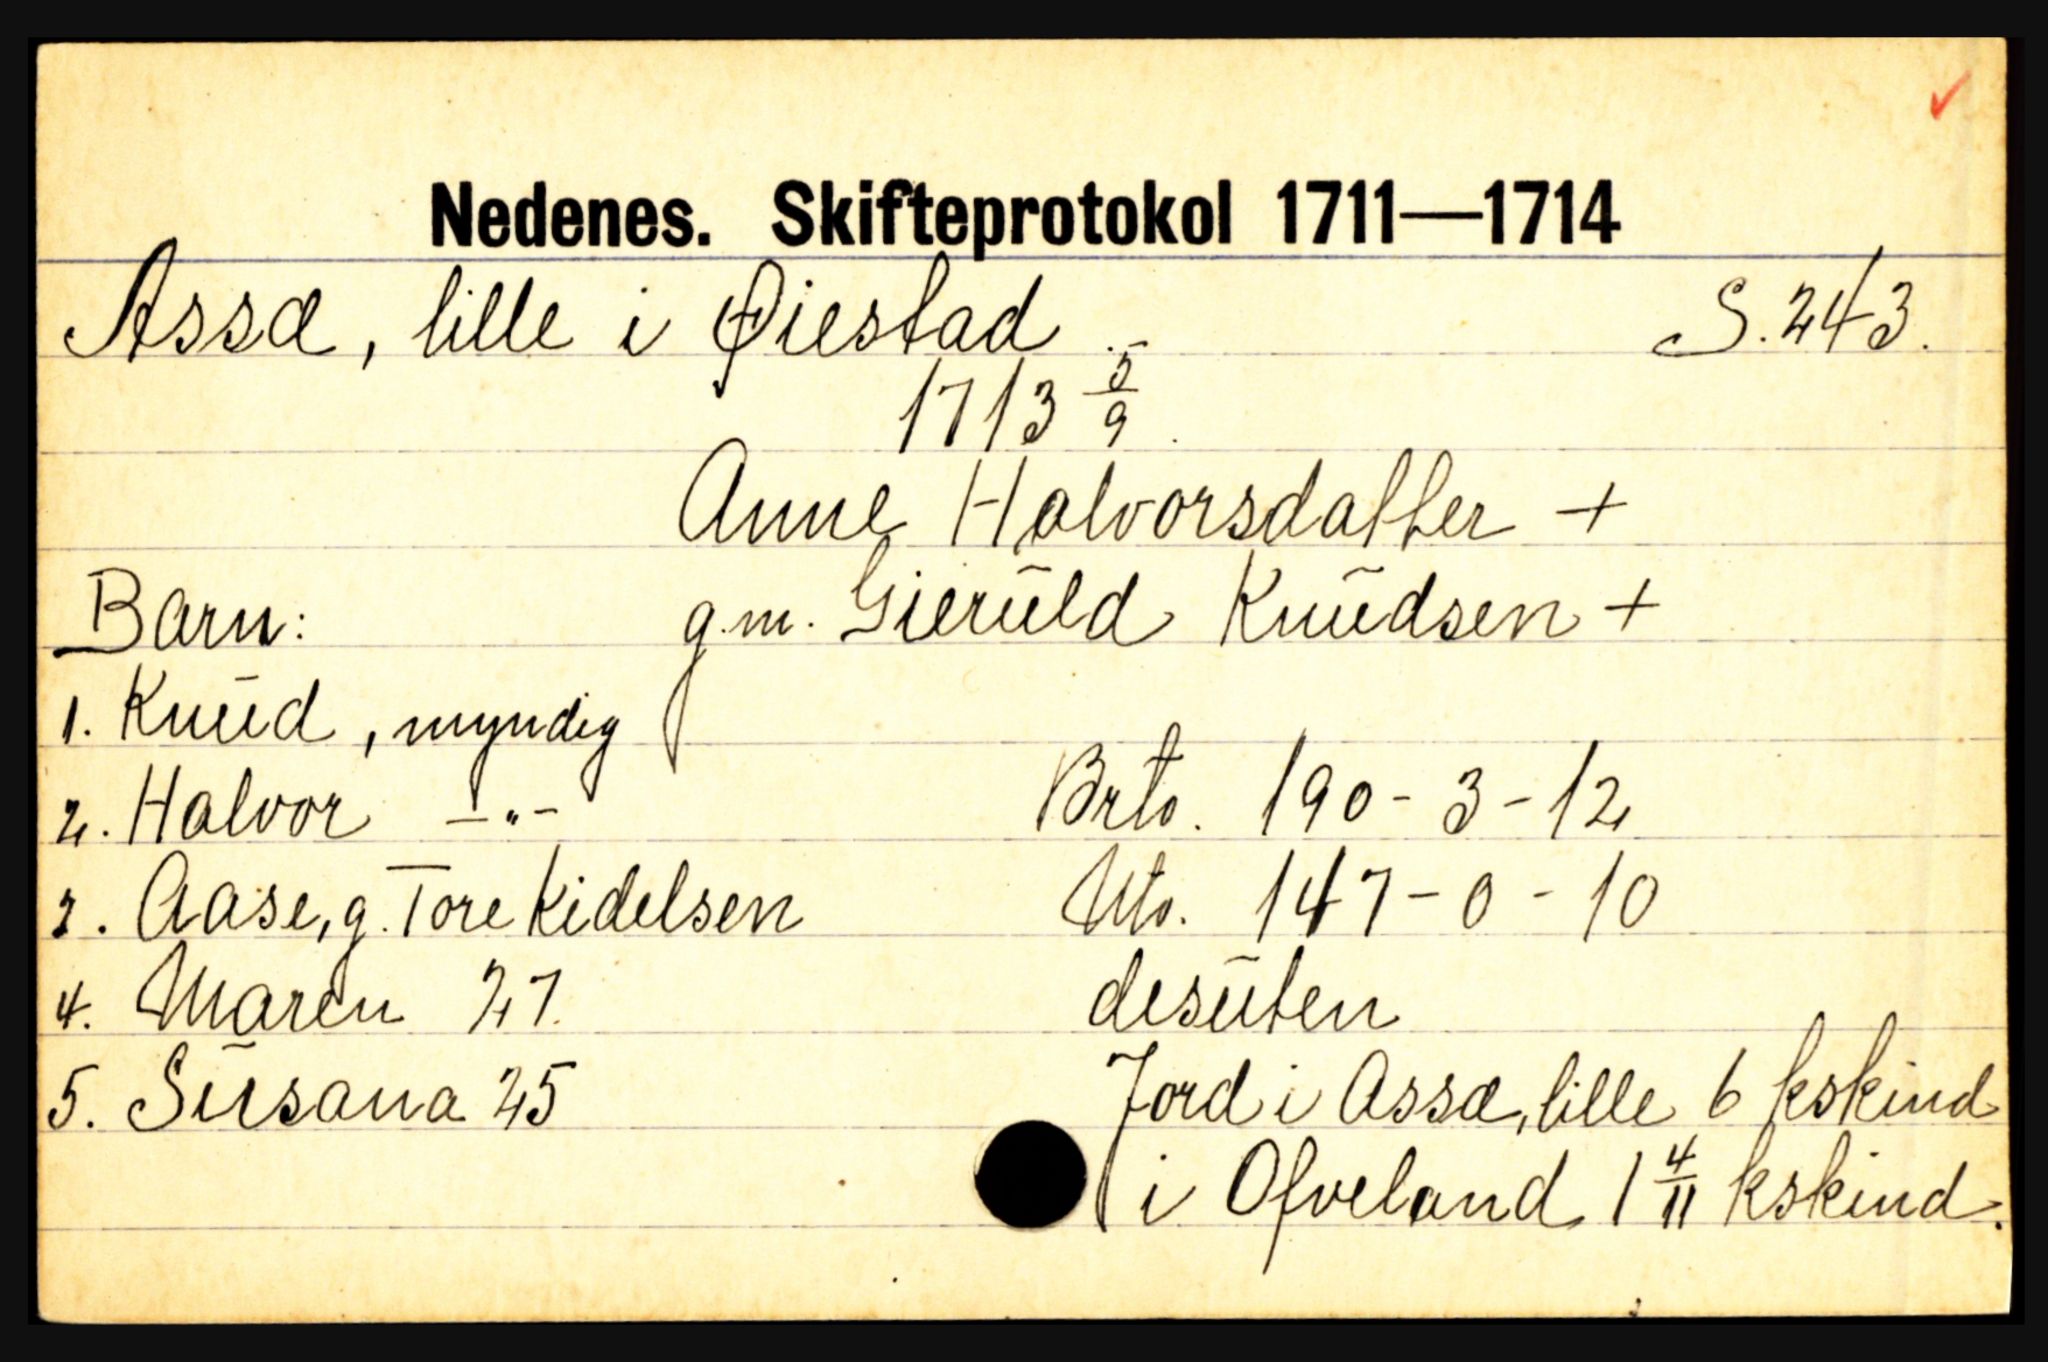 Nedenes. Skifteprotokol 1711—1714
Assæ, lille i Øiestad. S. 243.
1713 5/9.
Anne Halvorsdatter +
Barn: g.m. Gierŭld Knŭdsen +
1. Knŭd, myndig
2. Halvor —"— Brto. 190 - 3 - 12
3. Aase, g. Tore Kidelsen Nto. 147 - 0 - 10
4. Maren 27. desŭten
5. Sŭsana 25 Jord i Assæ, lille 6 kskind
i Ofveland 1 4/11 kskind.